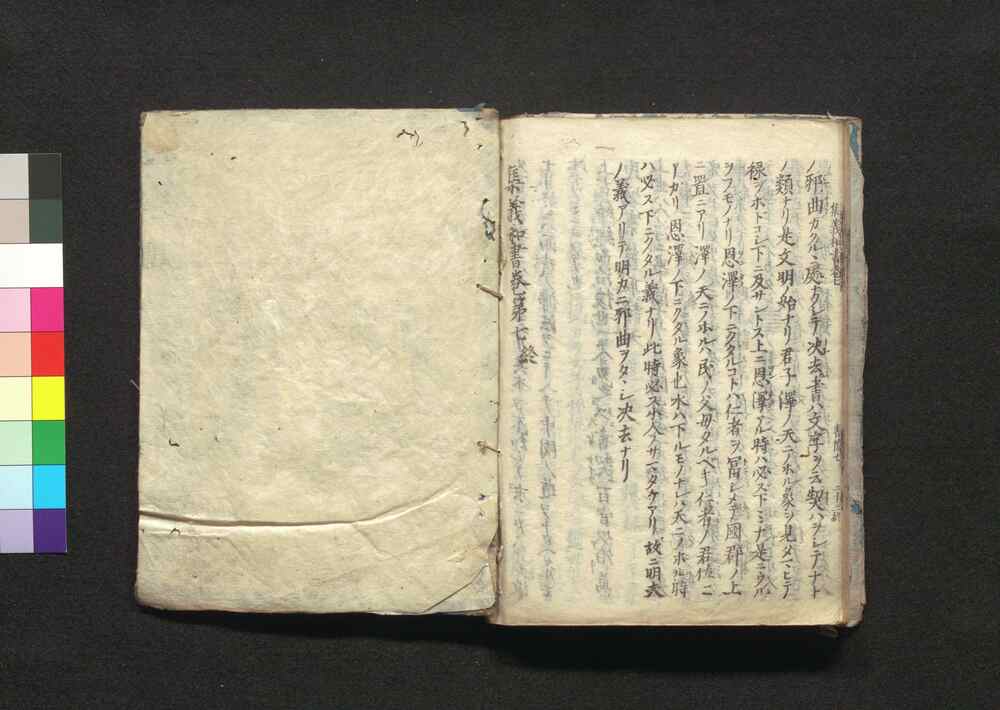 ノ邪曲カクル、處ナクシテ決去書ハ文字ヲノミ契ハワレテナト
ノ類ナリ是文明ノ始ナリ君子澤ノ天ニノホル象ヲ見メ、ヒテ
禄ヲホトコシ下ニ及サントス上ニ恩澤アル時ハ必ス下ミナ是ニウル
ヲフモノナリ恩澤ノ下ニクタルコトハ仁者ヲ冨シメテ國郡ノ上
ニ置ニアリ澤ノ天ニノホルハ民ノ父母タルベキ仁者ノ君位ニ
アカリ恩澤ノ下ニクタル象也水ハ下ルモノナレハ天ニノホル時
ハ必ス下ニクタル義ナリ此時必ス小人ノサマタケアリ故ニ明夬
ノ義アリテ明カニ邪曲ヲタ、シ決去ナリ
集義和書巻第七終